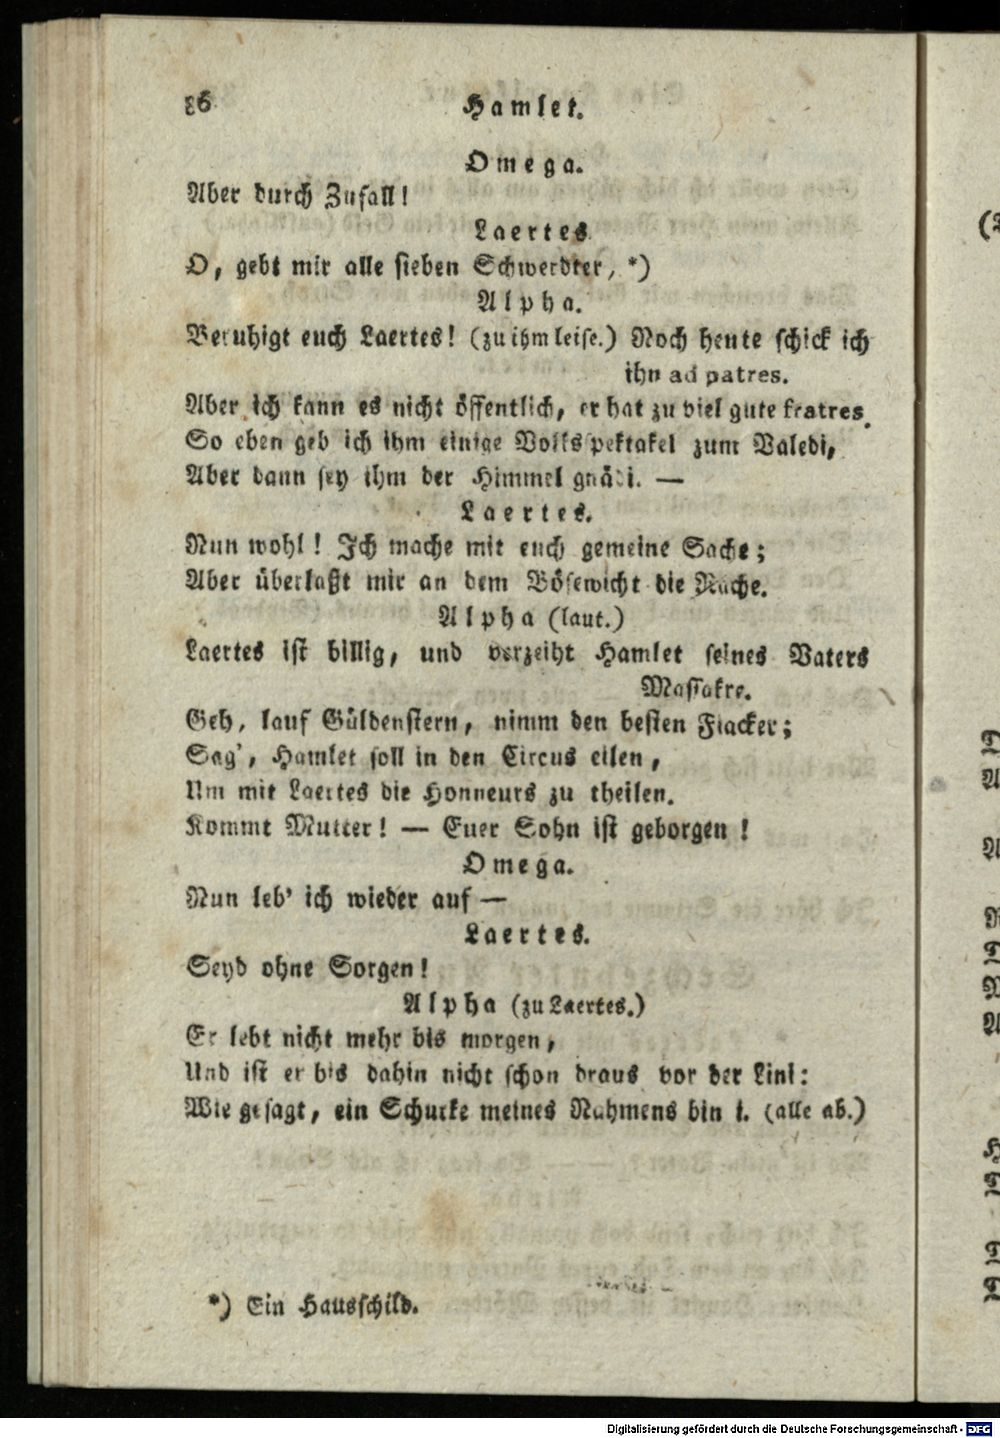 86 Hamlet.
Omega.
Aber durch Zufall!
Laertes
O, gebt mir alle sieben Schwerdter, *)
Alpha.
Beruhigt euch Laertes! (zu ihm leise.) Noch heute schick ich
ihn ad patres.
Aber ich kann es nicht öffentlich, er hat zu viel gute fratres.
So eben geb ich ihm einige Volksspektakel zum Valedi,
Aber dann sey ihm der Himmel gnädi. —
Laertes.
Nun wohl! Ich mache mit euch gemeine Sache;
Aber überlaßt mir an dem Bösewicht die Rache.
Alpha (laut.)
Laertes ist billig, und verzeiht Hamlet seines Vaters
Massakre.
Geh, lauf Güldenstern, nimm den besten Fiacker;
Sag', Hamlet soll in den Circus eilen,
Um mit Laertes die Honneurs zu theilen.
Kommt Mutter! — Euer Sohn ist geborgen!
Omega.
Nun leb' ich wieder auf —
Laertes.
Seyd ohne Sorgen!
Alpha (zu Laertes.)
Er lebt nicht mehr bis morgen,
Und ist er bis dahin nicht schon draus vor der Lini:
Wie gesagt, ein Schurke meines Nahmens bin i. (alle ab.)
*) Ein Hausschild.
Digitalisierung gefördert durch die Deutsche Forschungsgemeinschaft - DFG